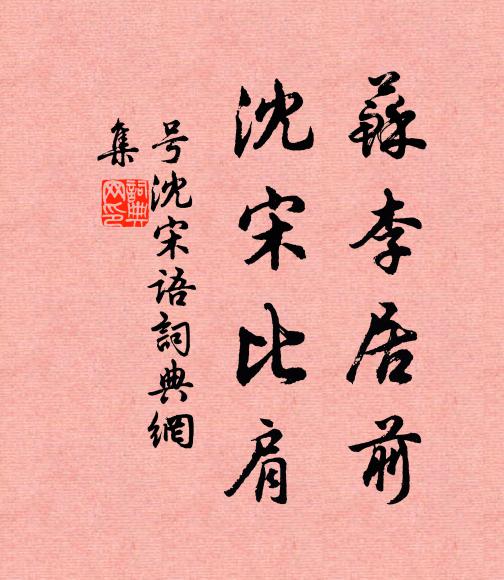 蘇李居前
沈宋比肩
号沈宋語詞典網
集
詞典网印